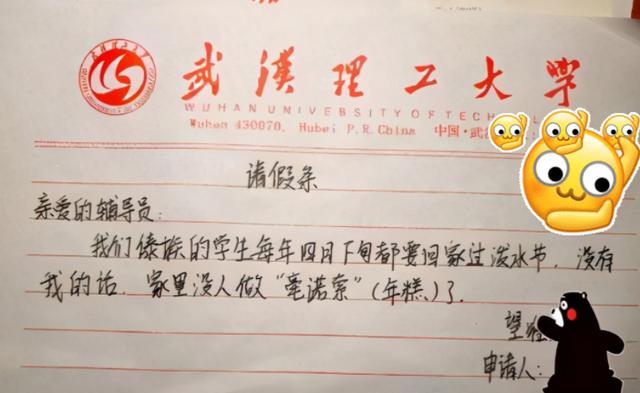 武汉理工大学
WUHAN UNIVERSITY OF TECHNOL
Wuhan 430070, Hubei P.R.China 中国·武
请假条
亲爱的辅导员:
我们傣族的学生每年四月下旬都要回家过泼水节，没有
我的话，家里没人做“毫诺索”(年糕)了.
望
申请人: